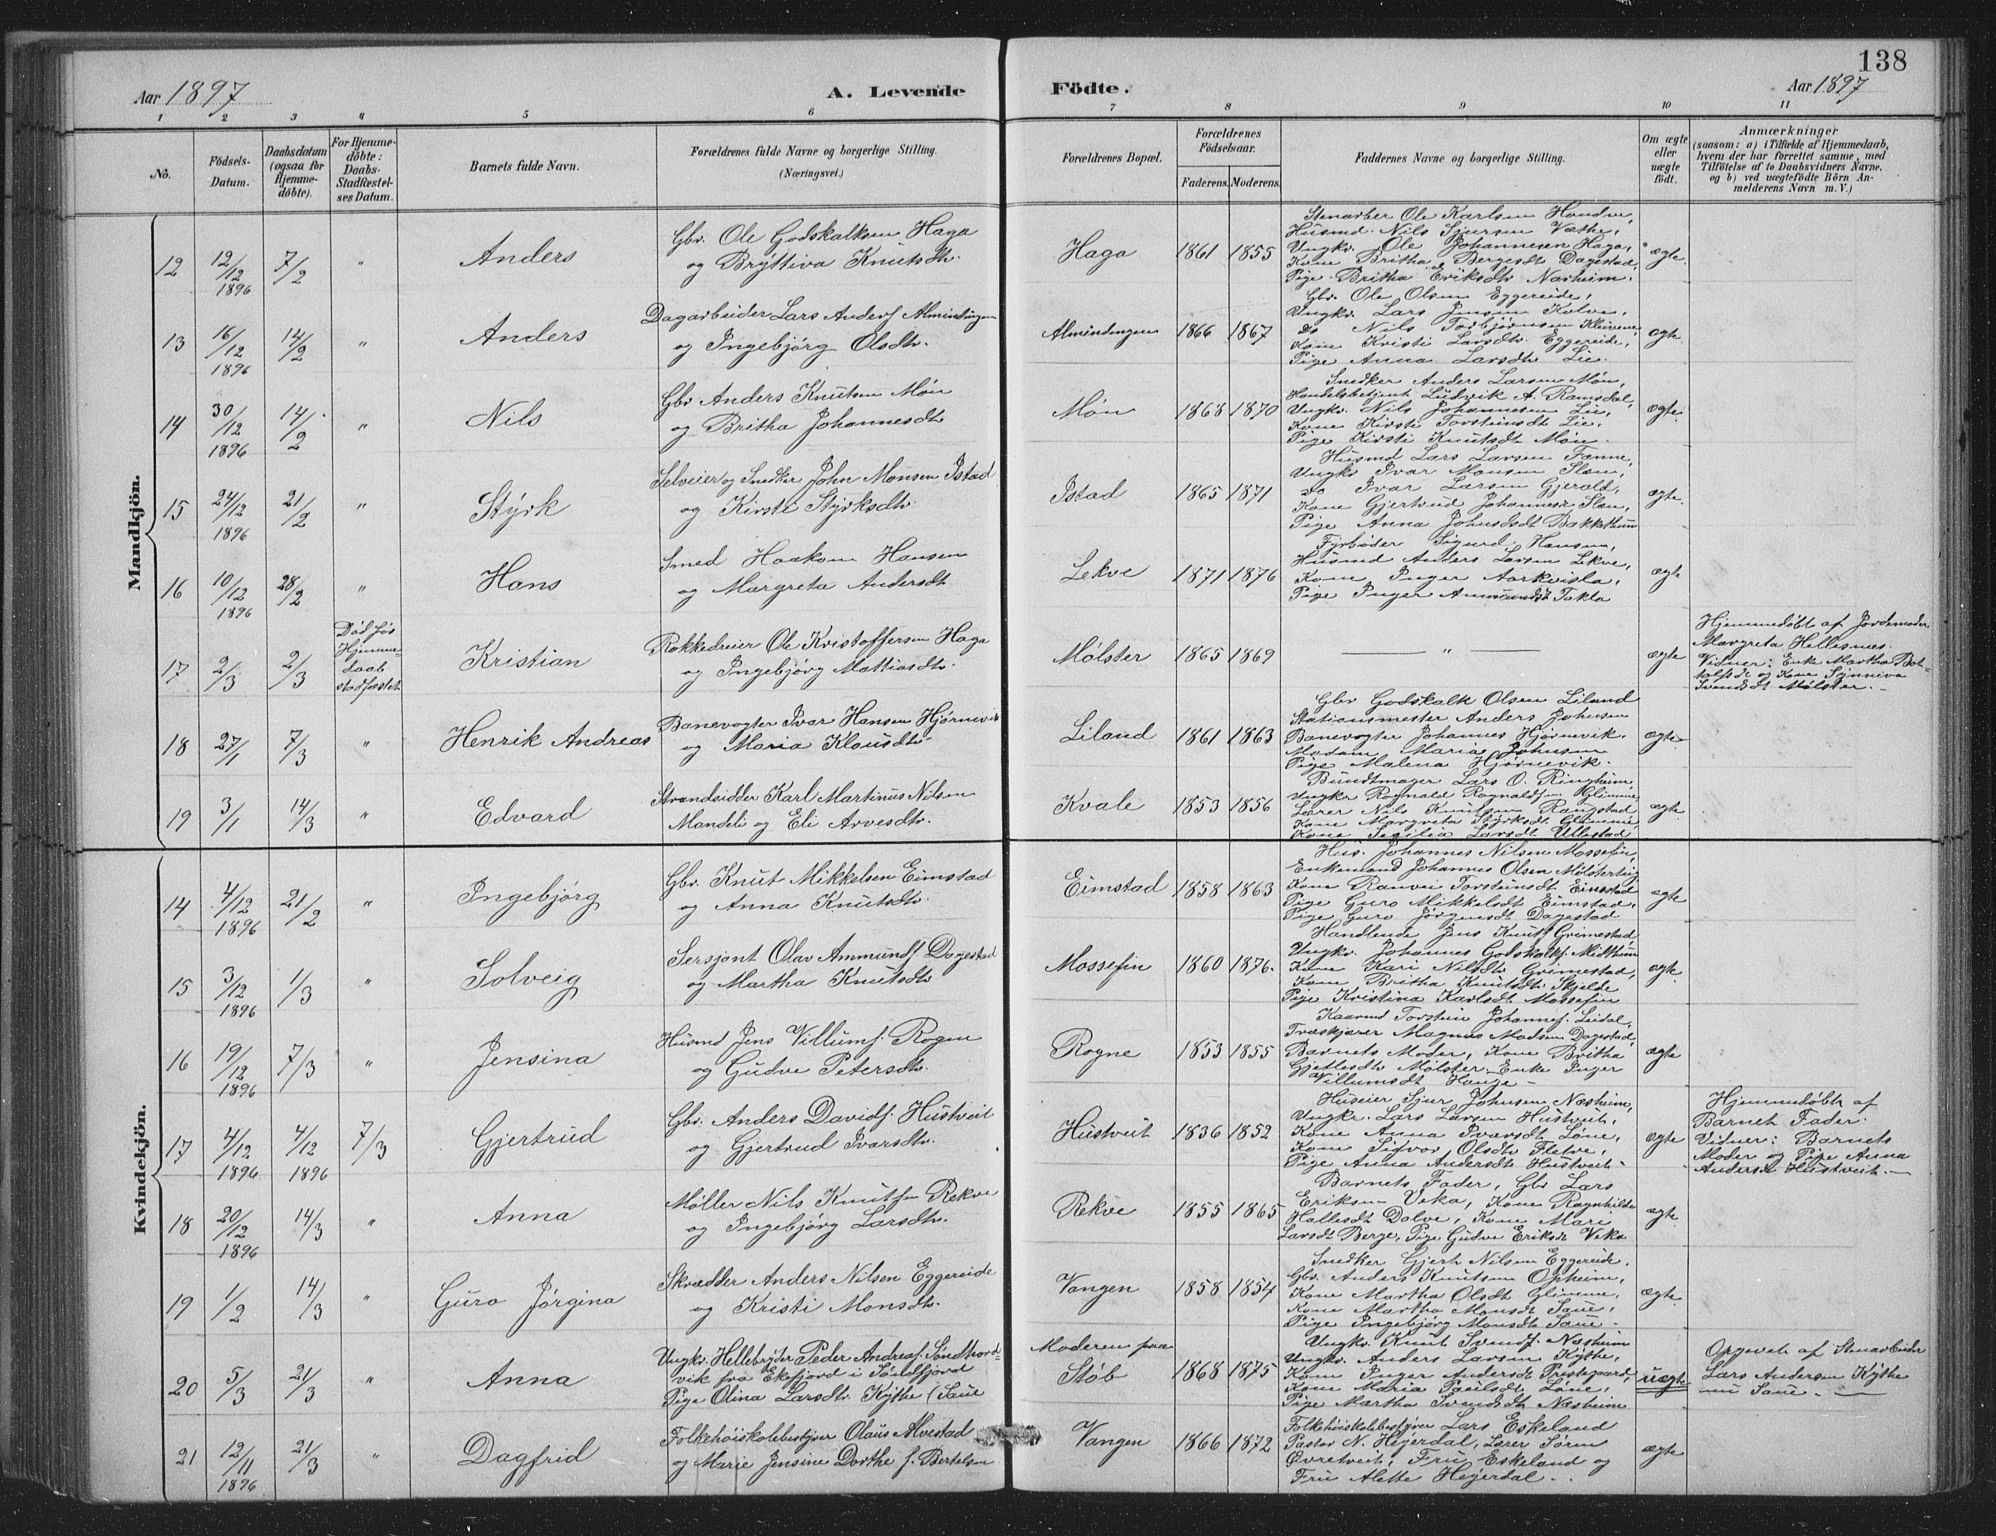 138
Aar 1897
A. Levende
Födte.
Aar 1897
1 2 3 4 5 6 7 8 9 10 11
No.
Födsels-
Datum.
Daabsdatum
(ogsaa for
Hjemme-
döbte).
For Hjemme-
döbte:
Daabs-
Stadfæstel-
ses Datum.
Barnets fulde Navn.
Forældrenes fulde Navne og borgerlige Stilling.
(Næringsvei.)
Forældrenes Bopæl.
Forældrenes
Födselsaar.
Faderens. Moderens.
Faddernes Navne og borgerlige Stilling.
Om ægte
eller
uægte
födt.
Anmærkninger
(saasom: a) i Tilfælde af Hjemmedaab,
hvem der har forrettet samme, med
Tilföielse af to Daabsvidners Navne.
og b) ved uægtefödte Börn An-
melderens Navn m. V.)
Mandkjön.
12 12/12 1896 7/2 " Anders
Gbr. Ole Godskalksen Haga
og Bryttiva Knutsdtr.
Haga 1861 1855
Stenarber Ole Karlsen Handve,
Husmd. Nils Sjursen Væthe,
Ungkr. Ole Johannesen Haga,
Kone Britha Bergesdt Dagestad,
Pige Britha Eriksdtr. Narheim.
ægte.
13 16/12 1896 14/2 " Anders
Dagarbeider Lars Andersf. Almindingen
og Ingebjörg Olsdtr.
Almindingen 1866 1867
Gbr. Ole Olsen Eggereide,
Ungkr. Lars Jensen Kolve,
do Nils Torbjörnsen Kleivene,
Kone Kristi Larsdtr. Eggereide,
Pige Anna Larsdtr Lie.
ægte.
14 30/12 1896 14/2 " Nils
Gbr. Anders Knutsen Møn
og Britha Johannesdtr.
Møn 1868 1870
Snedker Anders Larsen Møn,
Handelsbetjent Ludvik A. Ramsdal,
Ungkr. Nils Johannesen Lie,
Kone Kirsti Torsteinsdt Lie,
Pige Kirsti Knutsdt Møn.
ægte.
15 24/12 1896 21/2 " Styrk
Selveier og Snedker John Monsen Istad
og Kirsti Styrksdtr.
Istad 1865 1871
Husmd Lars Larsen Fænne,
Ungkr Ivar Monsen Slæn,
do Ivar Larsen Gjerald,
Kone Gjertrud Johannesdt Slæn,
Pige Anna Johnsdt Bakkethun
ægte.
16 10/12 1896 28/2 " Hans
Smed Haakon Hansen
og Margreta Andersdt
Lekve 1871 1876
Fyrböder Sigurd Hansen,
Husmd Anders Larsen Lekve,
Kone Inger Aarkvisla,
Pige Inger Ammundsdt Takla
ægte
17 2/3 2/3
Död før
Hjemme-
daab
stadfæstet
Kristian
Rokkedreier Ole Kristoffersen Haga
og Ingebjörg Mattiasdtr.
Mølster 1865 1869
"
ægte
Hjemmedøbt af Jordemoder
Margreta Hellesnes.
Vidner: Enke Martha Bot-
tolfsdt og Kone Synneva
Svendsdt Mølster.
18 27/1 7/3 " Henrik Andreas
Banevogter Ivar Hansen Hjørnevik
og Maria Klausdtr.
Liland 1861 1863
Gbr Godskalk Olsen Liland
Stationsmester Anders Johnsen
Banevogter Johannes Hjørnevik.
Madam Maria Johnsen
Pige Malena Hjørnevik.
ægte
19 3/1 14/3 " Edvard
Strandsidder Karl Martinus Nilsen
Mandeli og Eli Arvesdtr.
Kvale 1853 1856
Bundtmager Lars O. Ringheim,
Ungkr Ragnald Ragnaldsen Glimme
Lærer Nils Knutsen Raugstad,
Kone Margreta Styrksdt Glimme,
Kone Secilia Larsdt Ullestad
ægte
Kvindekjön.
14 4/12 1896 21/2 " Ingebjörg
Gbr. Knut Mikkelsen Eimstad
og Anna Knutsdtr.
Eimstad 1858 1863
Hus. Johannes Nilsen Mossefin,
Enkemand Johannes Olsen Mølsterteig
Kone Ranvei Torsteinsdt Eimstad,
Pige Guro Mikkelsdt Eimstad,
Pige Guro Jørgensdt Dagestad
ægte
15 3/12 1896 1/3 " Solveig
Sersjant Olav Ammundsf. Dagestad
og Martha Knutsdtr
Mossefin 1860 1876.
Handlende Jens Knutsf Grimestad,
Ungkr. Johannes Godskalksf. Midthun
Kone Kari Nilsdtr Grimestad,
Kone Britha Knutsdt Skjelde
Pige Kristina Karlsdt Mossefin
ægte
16 19/12 1896 7/3 " Jensina
Husmd Jens Villumsf. Rogne
og Gudve Petersdtr.
Rogne 1853 1855
Kaarmd Torstein Johannesf. Leidal,
Træskjærer Magnus Madsen Dagestad,
Barnets Moder, Kone Britha
Gjetlesdt Mølster. Enke Inger
Villumsdt Hauge
ægte
17 4/12 1896 4/12 1896 7/3 Gjertrud
Gbr. Anders Davidsf. Hustveit
og Gjertrud Ivarsdtr.
Hustveit 1836 1852
Huseier Sjur Johnsen Næsheim,
Ungkr. Lars Larsen Hustveit,
Kone Anna Ivarsdt Løne,
Kone Sigvor Olsdtr Fletve,
Pige Anna Andersdt Hustveit.
ægte
Hjemmedøbt af
Barnet Fader.
Vidner: Barnets
Moder og Pige Anna
Andersdt Hustveit.
18 20/12 1896 14/3 " Anna
Møller Nils Knutsen Rekve
og Ingebjörg Larsdtr.
Rekve 1855 1865
Barnets Fader, Gbr Lars
Eriksen Veka, Kone Ragnhilda
Hallesdt Dolve, Kone Mari
Larsdt Berge, Pige Gudve Eriksdt Veka
ægte.
19 1/2 14/3 " Guro Jørgina
Skrædder Anders Nilsen Eggereide
og Kristi Monsdtr.
Vangen 1858 1854
Snedker Gjert Nilsen Eggereide,
Gbr. Anders Knutsen Opheim,
Kone Martha Olsdt Glimme,
Kone Martha Monsdt Saue,
Pige Ingebjörg Monsdt Saue.
ægte.
20 5/3 21/3 " Anna
Ungkr. Hellebryter Peder Andreasf. Søndhord-
vik fra Ekefjord i Söndfjord
Pige Olina Larsdtr Kythe (Saue
Moderen paa
Støb 1868 1875
Ungkr. Knut Svendsf. Næsheim
Ungkr. Anders Larsen Kythe,
Kone Inger Andersdt Prestegaard,
Kone Maria Paulsdt Løne,
Pige Martha Svendsdt Næsheim
uægte
Opgivet af Stenarbeider
Lars Andersen Kythe
nu Saue.
21 12/11 1896 21/3 " Dagfrid
Folkehøiskolebestyrer Olaus Alvestad
og Marie Jensine Dorthe f. Bertelsen
Vangen 1866 1872
Folkehøiskolebestyrer Lars Eskeland
Pastor N. Hejerdal, Lærer Sören
Øvretveit, Fru Eskeland og
Fru Alette Hejerdal.
ægte